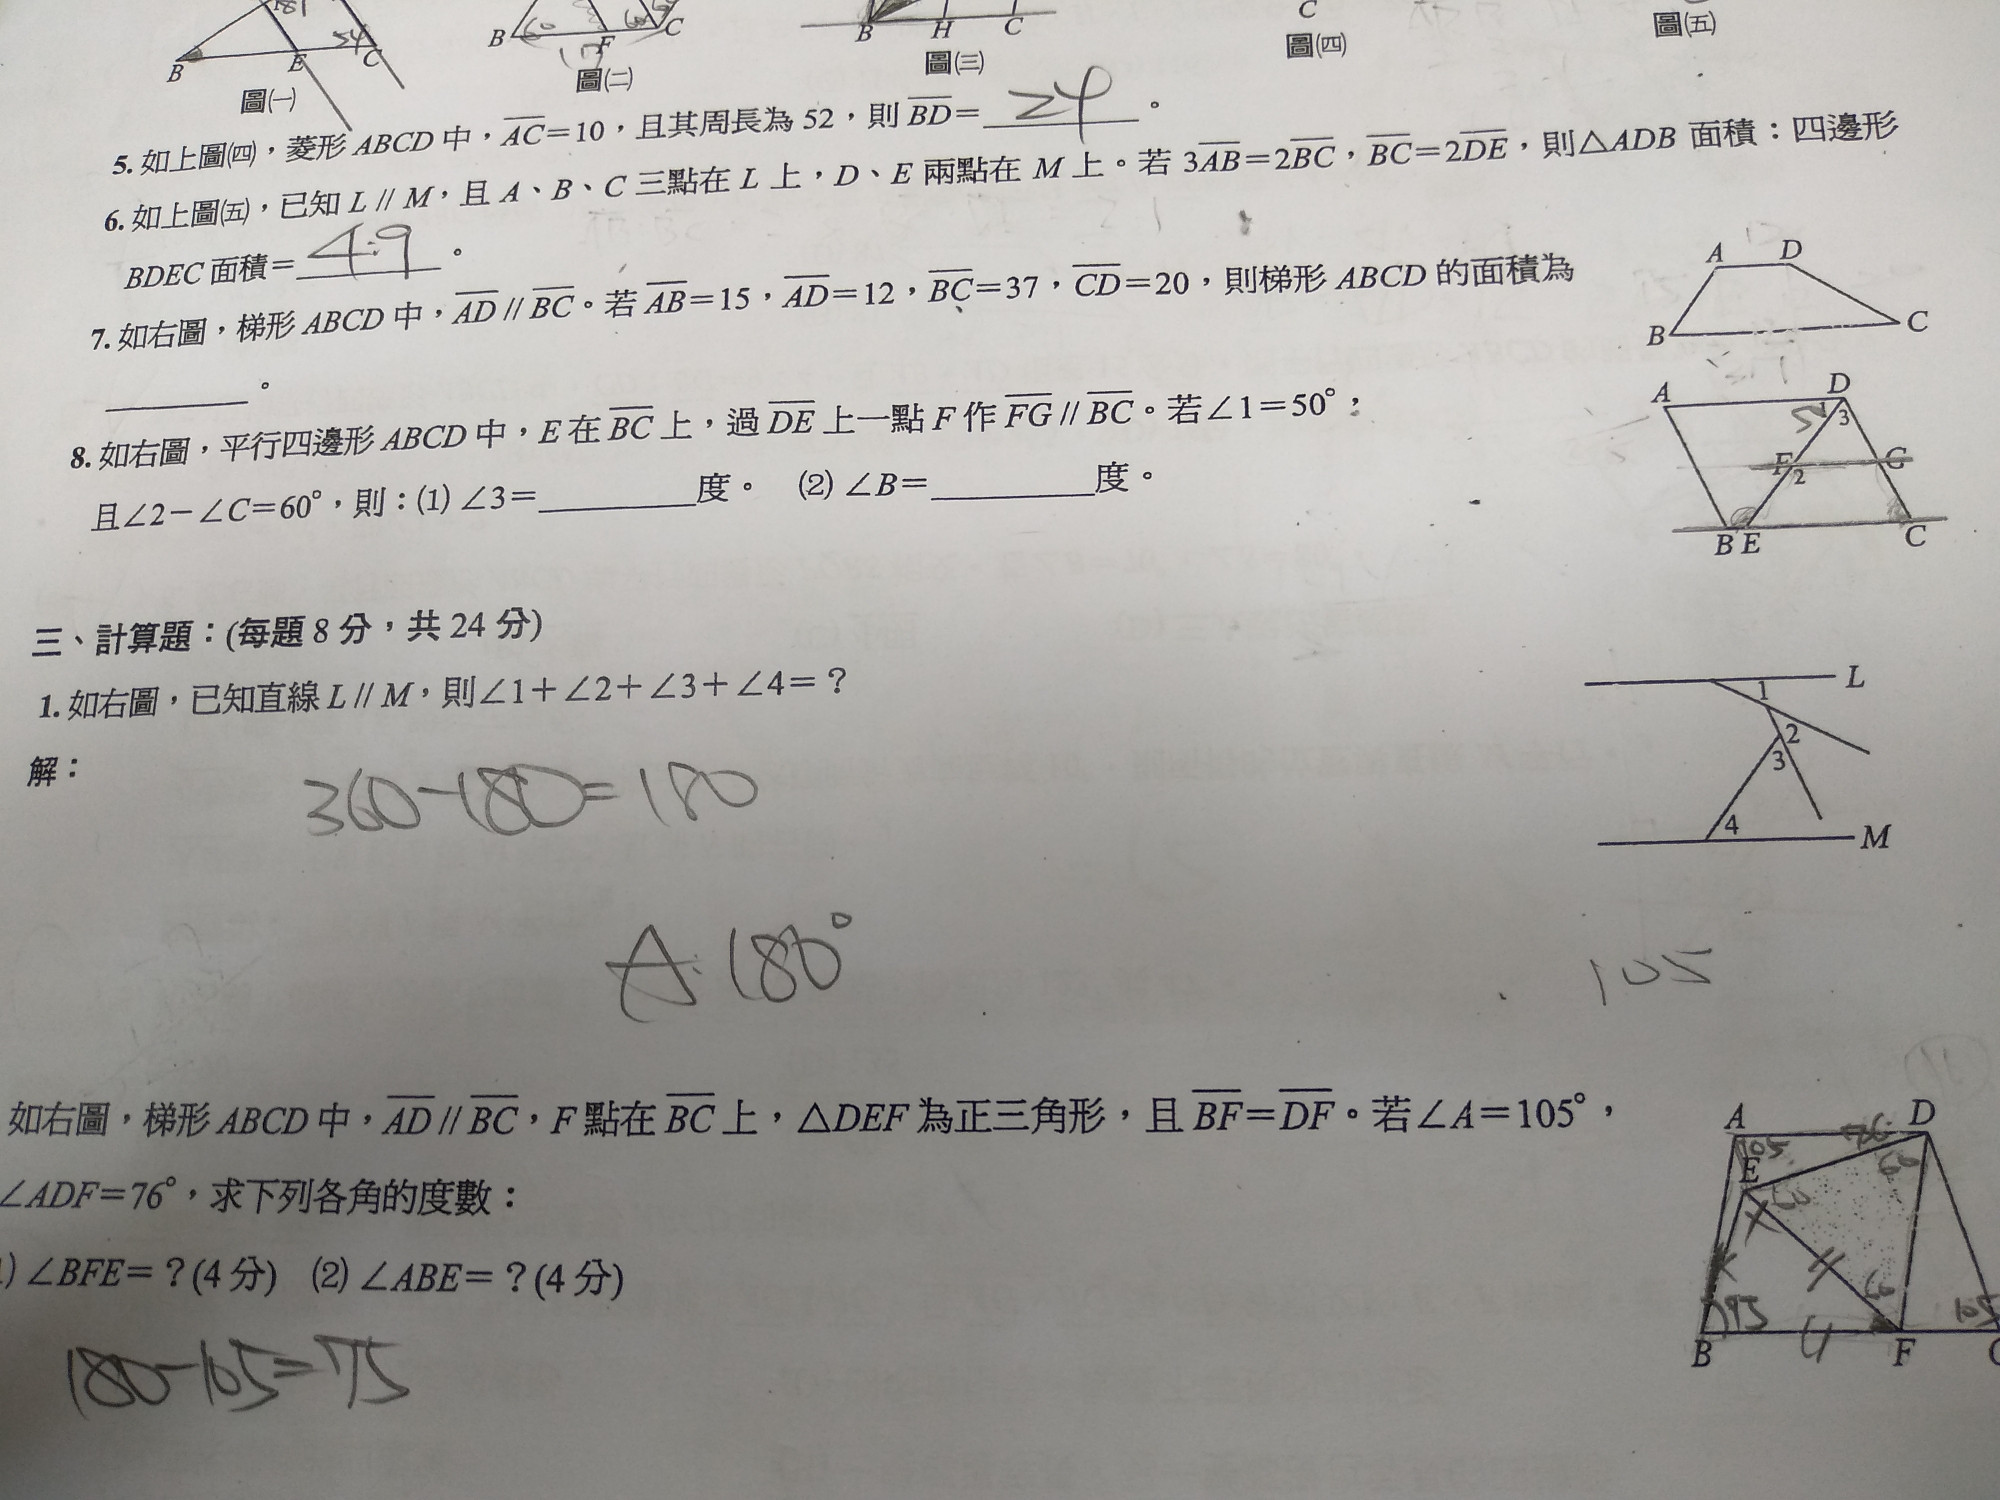 B E C
圖(一)
B F C
圖(二)
B H C
圖(三)
C
圖(四)
圖(五)
5. 如上圖(四)，菱形 ABCD 中，AC=10，且其周長為 52，則 BD= 24 。
6. 如上圖(五)，已知 L // M，且 A、B、C 三點在 L 上，D、E 兩點在 M 上。若 3AB=2BC，BC=2DE，則△ADB 面積：四邊形
BDEC 面積= 4:9 。
7. 如右圖，梯形 ABCD 中，AD // BC。若 AB=15，AD=12，BC=37，CD=20，則梯形 ABCD 的面積為
。
A D
B C
8. 如右圖，平行四邊形 ABCD 中，E 在 BC 上，過 DE 上一點 F 作 FG // BC。若∠1=50°，
且∠2－∠C=60°，則：(1) ∠3= 度。 (2) ∠B= 度。
A D
1 3
F 2 G
B E C
三、計算題：(每題 8 分，共 24 分)
1. 如右圖，已知直線 L // M，則∠1＋∠2＋∠3＋∠4=？
解：
1 L
2
3
4 M
360-180=180
A:180°
105
如右圖，梯形 ABCD 中，AD // BC，F 點在 BC 上，△DEF 為正三角形，且 BF=DF。若∠A=105°，
∠ADF=76°，求下列各角的度數：
) ∠BFE=？(4 分) (2) ∠ABE=？(4 分)
180-105=75
A D
105 60
E
60
105
B F